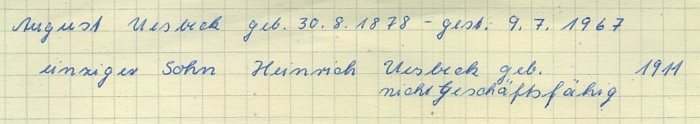 August Uesbeck geb. 30.8.1878 - gest. 9.7.1967
einziger Sohn Heinrich Uesbeck geb. 1911
nicht Geschäftsfähig